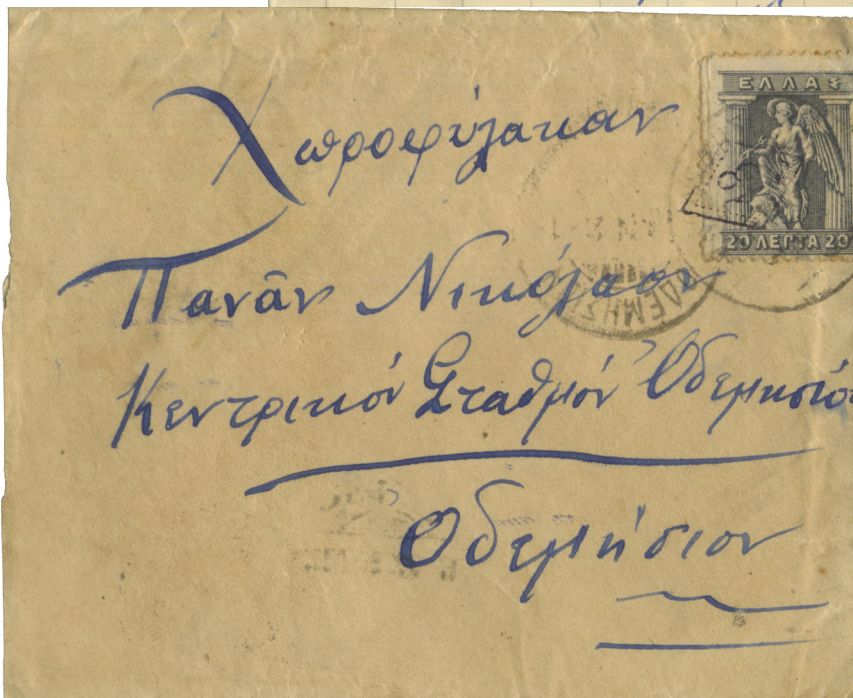 ΕΛΛΑΣ
20 ΛΕΠΤΑ 20
Χωροφύλακαν
Πανᾶν Νικόλαον
Κεντρικόν Σταθμόν Ὀδεμησίου
Οδεμήσιον